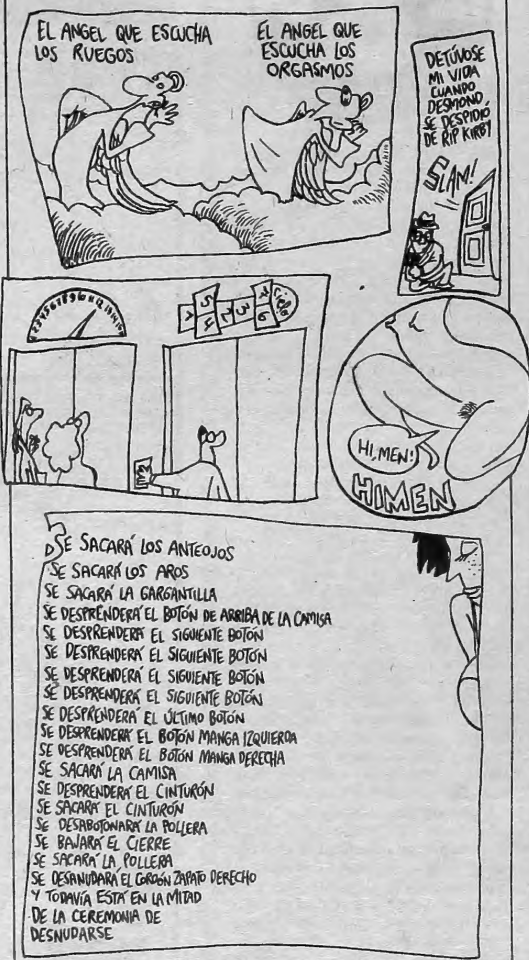 EL ANGEL QUE ESCUCHA
LOS RUEGOS
EL ANGEL QUE
ESCUCHA LOS
ORGASMOS
DETÚVOSE
MI VIDA
CUANDO
DESMOND
SE DESPIDIÓ
DE RIP KIRBY
SLAM!
HI, MEN!
HIMEN
SE SACARÁ LOS ANTEOJOS
SE SACARÁ LOS AROS
SE SACARÁ LA GARGANTILLA
SE DESPRENDERÁ EL BOTÓN DE ARRIBA DE LA CAMISA
SE DESPRENDERÁ EL SIGUIENTE BOTÓN
SE DESPRENDERÁ EL SIGUIENTE BOTÓN
SE DESPRENDERÁ EL SIGUIENTE BOTÓN
SE DESPRENDERÁ EL SIGUIENTE BOTÓN
SE DESPRENDERÁ EL ÚLTIMO BOTÓN
SE DESPRENDERÁ EL BOTÓN MANGA IZQUIERDA
SE DESPRENDERÁ EL BOTÓN MANGA DERECHA
SE SACARÁ LA CAMISA
SE DESPRENDERÁ EL CINTURÓN
SE SACARÁ EL CINTURÓN
SE DESABOTONARÁ LA POLLERA
SE BAJARÁ EL CIERRE
SE SACARÁ LA POLLERA
SE DESANUDARA EL CORDÓN ZAPATO DERECHO
Y TODAVÍA ESTÁ EN LA MITAD
DE LA CEREMONIA DE
DESNUDARSE